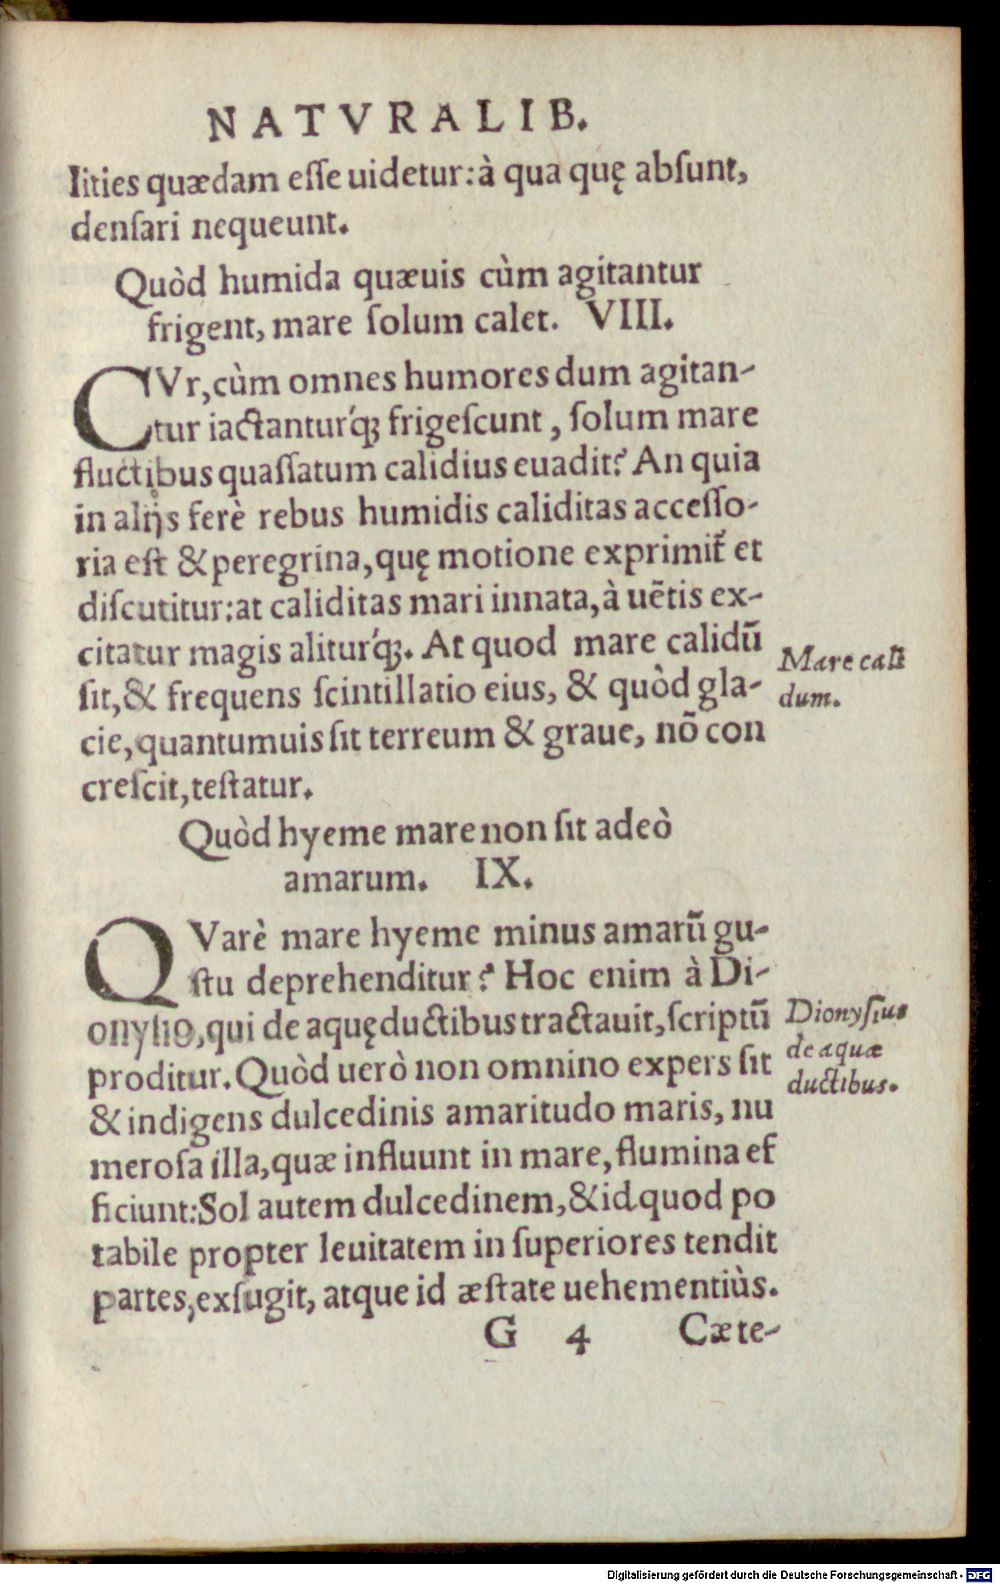 NATVRALIB.
lities quædam eſſe uidetur: à qua quę abſunt,
denſari nequeunt.
Quòd humida quæuis cùm agitantur
frigent, mare ſolum calet. VIII.
CVr, cùm omnes humores dum agitan-
tur iactanturq́ꝫ frigeſcunt, ſolum mare
fluctibus quaſſatum calidius euadit? An quia
in alijs ferè rebus humidis caliditas acceſſo-
ria eſt & peregrina, quę motione exprimit᷑ et
diſcutitur: at caliditas mari innata, à uẽtis ex-
citatur magis aliturq́ꝫ. At quod mare calidũ
ſit, & frequens ſcintillatio eius, & quòd gla-
cie, quantumuis ſit terreum & graue, nõ con
creſcit, teſtatur.
Mare cali
dum.
Quòd hyeme mare non ſit adeò
amarum. IX.
QVarè mare hyeme minus amarũ gu-
ſtu deprehenditur? Hoc enim à Di-
onyſio, qui de aquęductibus tractauit, ſcriptũ
proditur. Quòd uerò non omnino expers ſit
& indigens dulcedinis amaritudo maris, nu
meroſa illa, quæ influunt in mare, flumina ef
ficiunt: Sol autem dulcedinem, & id quod po
tabile propter leuitatem in ſuperiores tendit
partes, exſugit, atque id æſtate uehementiùs.
Dionyſius
de aquæ
ductibus.
G 4 Cæte-
Digitalisierung gefördert durch die Deutsche Forschungsgemeinschaft - DFG